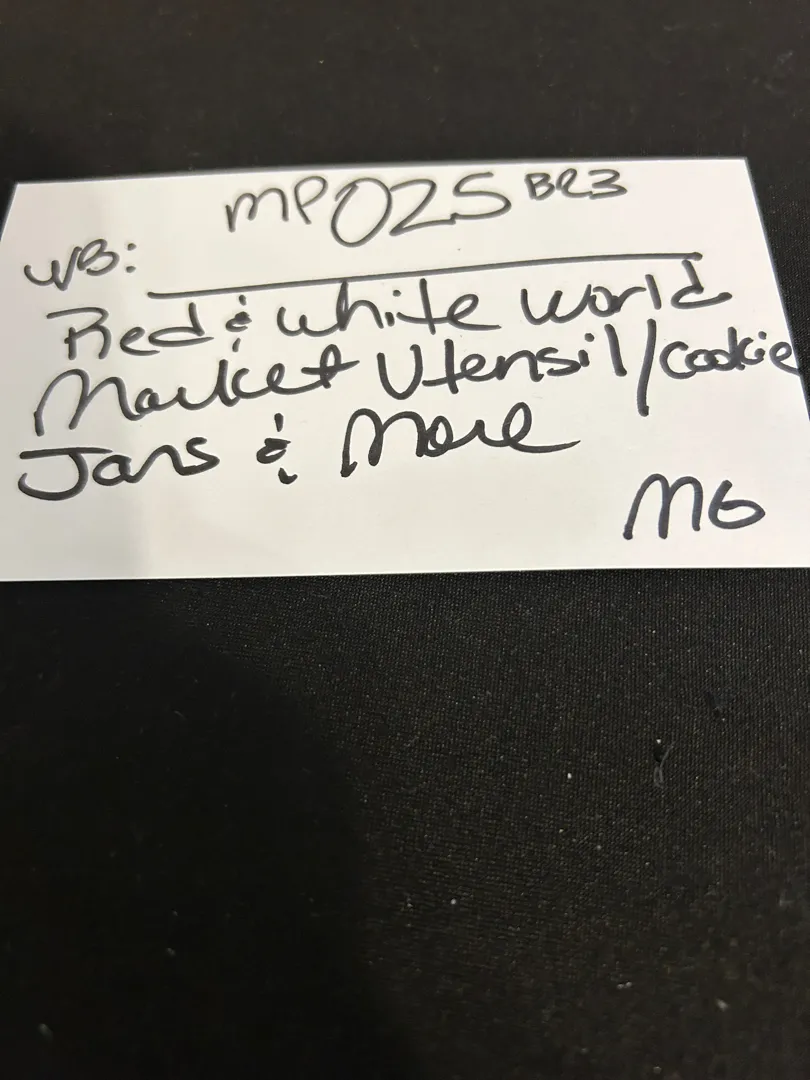 MP025 BR3
WB:
Red & White World
Market Utensil/Cookie
Jars & More
MG